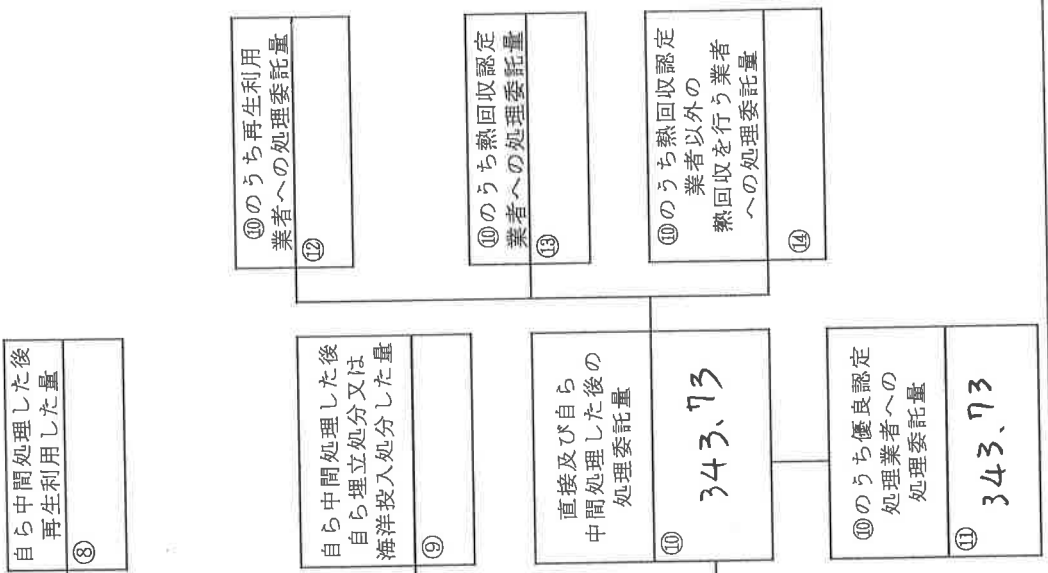 自ら中間処理した後
再生利用した量
⑧
自ら中間処理した後
自ら埋立処分又は
海洋投入処分した量
⑨
直接及び自ら
中間処理した後の
処理委託量
⑩
343、73
⑩のうち優良認定
処理業者への
処理委託量
⑪
343、73
⑩のうち再生利用
業者への処理委託量
⑫
⑩のうち熱回収認定
業者への処理委託量
⑬
⑩のうち熱回収認定
業者以外の
熱回収を行う業者
への処理委託量
⑭